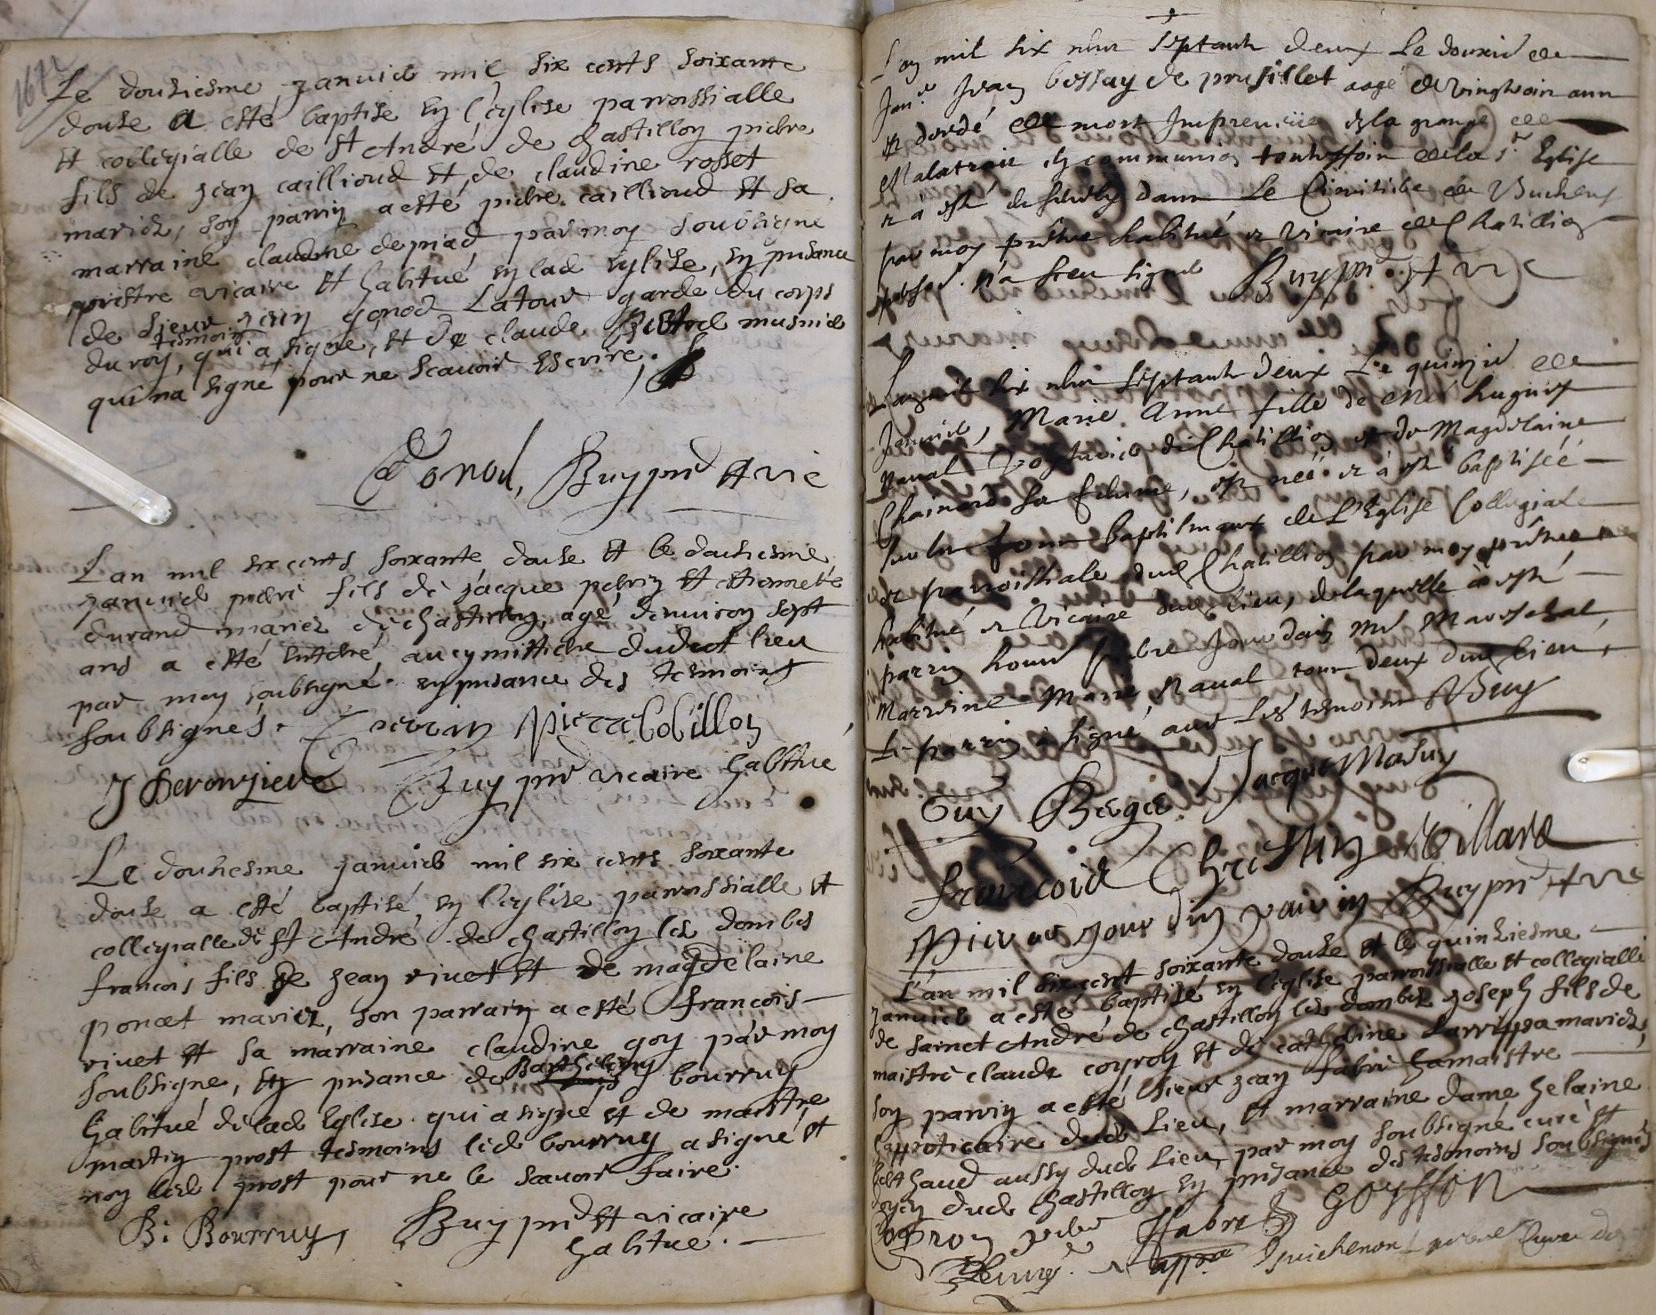 1672
Le dousiesme janvier mil six cents soixante
douse a esté baptisé en l'eglise parrossialle
et collegialle de St André de chastillon pierre
fils de jean caillioud et de claudine rosset
mariez, son parrin a esté pierre caillioud et sa
marraine claudine depiad par moy soubsigné
prestre vicaire et habitué en lad eglise, en presance
de sieur jean gonod Latour garde du corps
tesmoin
du roy, qui a signe, et de claude musnier
qui na signé pour ne scavoir escrire.
Gonod, Buy pre et vic
Lan mil six cents soixante douse et le dousiesme
janvier pierre fils de jacque perrin et ettiennette
durand mariez de chastillon, agé denviron sept
ans a esté enterré au cymittiere dudict lieu
par moy soubsigné en presance des tesmoins
soubsignés. Perrin Pierre Cobillon
J Deronziere Buy pre vicaire habitue
Le dousiesme janvier mil six cents soixante
douse a esté baptisé en l'eglise parrossialle et
collegialle de St André de chastillon les dombes
francois fils de jean rivet et de magdelaine
poncet mariez, son parrain a esté francois
rivet et sa marraine claudine goy par moy
soubsigne, en presance de Barthelemy bourruy
habitué de lad Eglise qui a signé et de maistre
martin prost tesmoins led bourruy a signé et
non led prost pour ne le scavoir faire.
B. Bourruy, Buy pre et vicaire
habitué.
L'an mil six cens septante deux Le douzie de
Janer Jean bessay de prusillet aagé de vingtrois ans
est decedé de mort Impreveüe en la grange de
Malatrait en communion toutesfois de la Ste Eglise
et a esté ensevely dans Le Cimitiere de Bucheny
par moy prêtre habitué et vicaire de Chatillion
n'a sceu signer Buy pre et vic
L'an mil six cens septante deux Le quinzie de
Janvier, Marie Anne fille de Me hugues
Raval de Chatillion et de Magdelaine
Chainard sa femme, est née et à esté baptisée
sur les fons baptismaux de L'Eglise Collegiale
et parroissiale dud Chatillion par moy prêtre
habitué et Vicaire dud lieu, de laquelle à esté
parrin honr Pierre Jourdain Me Mareschal,
Marreine Marie Raval tous deux dud lieu,
Le parrin a signé avec Les temoins Buy
Guy Bergier Jacque Masuy
francois Chrestin Villard
Pierre jourdin pairin Buy pre et vic
L'an mil six cent soixante douse et le quinsiesme
janvier a esté baptisé en l'eglise parrossialle et collegialle
de sainct André de chastillon les dombes joseph fils de
maistre claude coyron et de catherine Larrippa mariez,
son parrin a esté sieur jean fabri maistre
appoticaire dud Lieu, et marraine dame helaine
aussy dud Lieu, par moy soubsigné curé et
doyen dud chastillon en presance des tesmoins soubsignés
Coyron pere fabri Goyffon
appre Guichenon